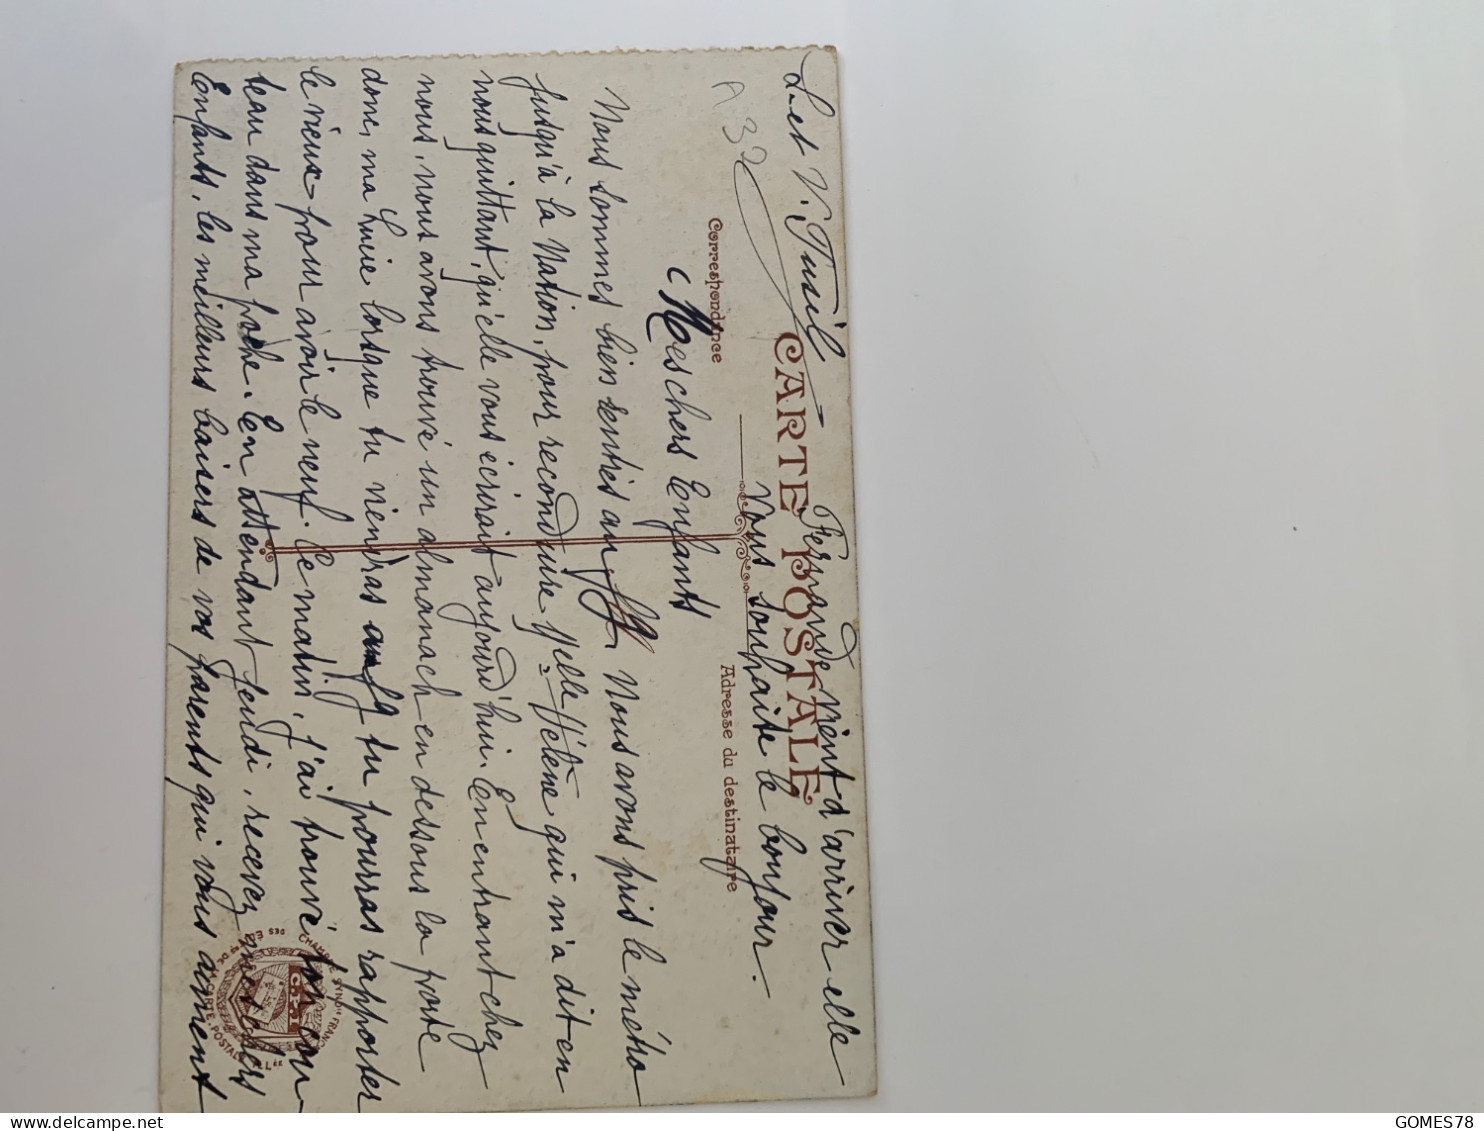 CARTE POSTALE
Correspondance
Adresse du destinataire
A 32
Fernande vient d'arriver elle
vous souhaite le bonjour.
Mes chers Enfants
Nous sommes bien rentrés au Nous avons pris le métro
jusqu'à la Nation, pour reconduire Melle Hélène qui m'a dit en
nous quittant, qu'elle vous écrirait aujourd'hui. En entrant chez
nous, nous avons trouvé un almanach en dessous la porte
donc, ma Lucie lorsque tu viendras tu pourras rapporter
le vieux pour avoir le neuf. Ce matin, j'ai trouvé ton cou
teau dans ma poche. En attendant jeudi, recevez mes chers
Enfants, les meilleurs baisers de vos parents qui vous aiment
L. et V. Fusil
CHAMBRE SYNDle FRANÇ
DES ÉDrs DE LA CARTE POSTALE ILLée
GOMES78